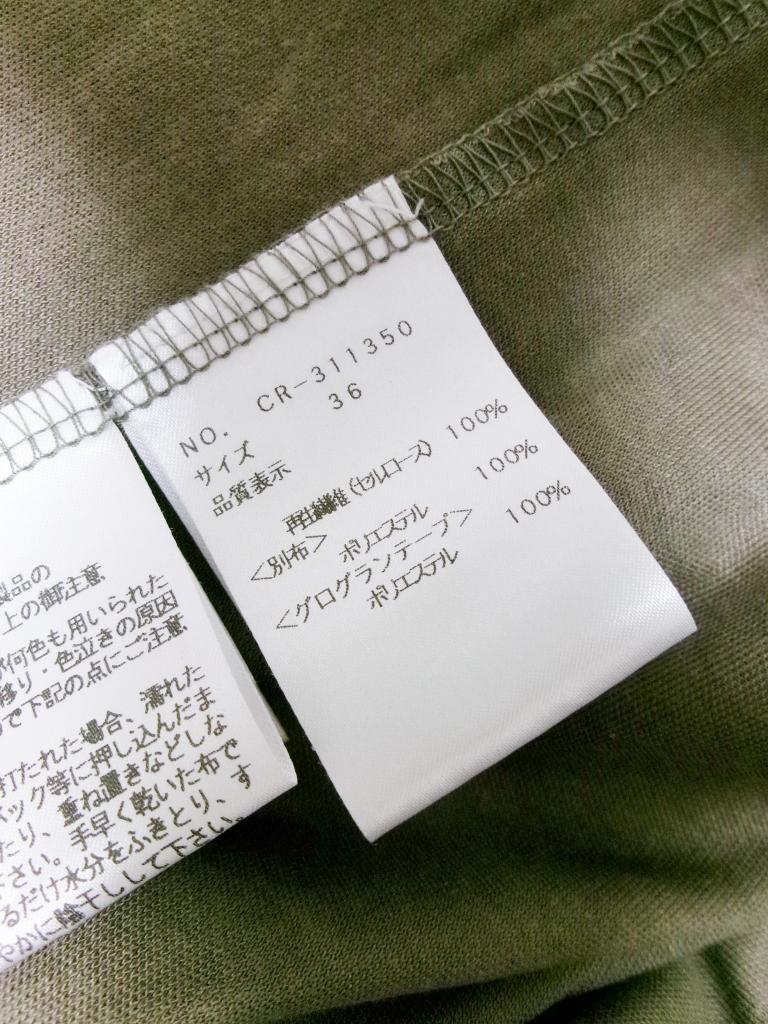 NO. CR-311350
サイズ 36
品質表示
再生繊維(セルロース) 100%
<別布> ポリエステル 100%
<グログランテープ>
ポリエステル 100%
製品の
上の御注意
が何色も用いられた
移り・色泣きの原因
で下記の点にご注意
打たれた場合、濡れた
バック等に押し込んだま
たり、重ね置きなどしな
下さい。手早く乾いた布で
るだけ水分をふきとり、す
やかに陰干しして下さい。